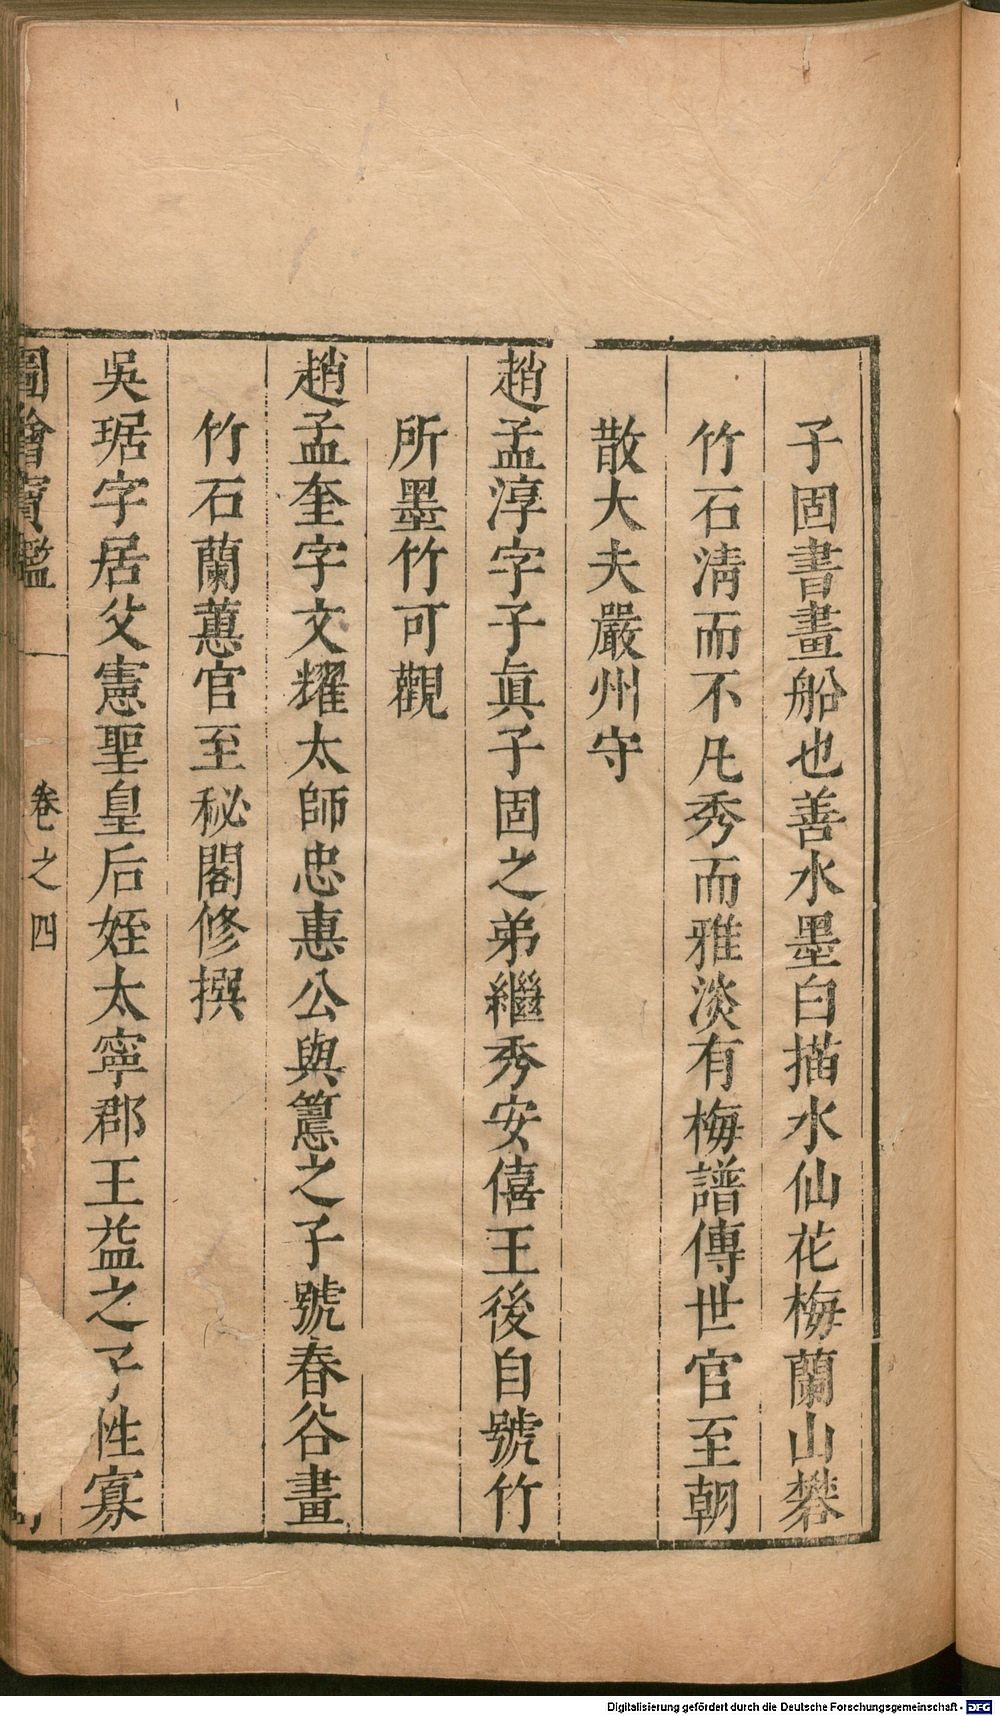 子固書畫船也善水墨白描水仙花梅蘭山礬
竹石淸而不凡秀而雅淡有梅譜傳世官至朝
散大夫嚴州守
趙孟淳字子眞子固之弟繼秀安僖王後自號竹
所墨竹可觀
趙孟奎字文耀太師忠惠公與𥲅之子號春谷畫
竹石蘭蕙官至秘閣修撰
吳琚字居父憲聖皇后姪太寧郡王益之子性寡
圖繪寶鑑 卷之四
Digitalisierung gefördert durch die Deutsche Forschungsgemeinschaft - DFG